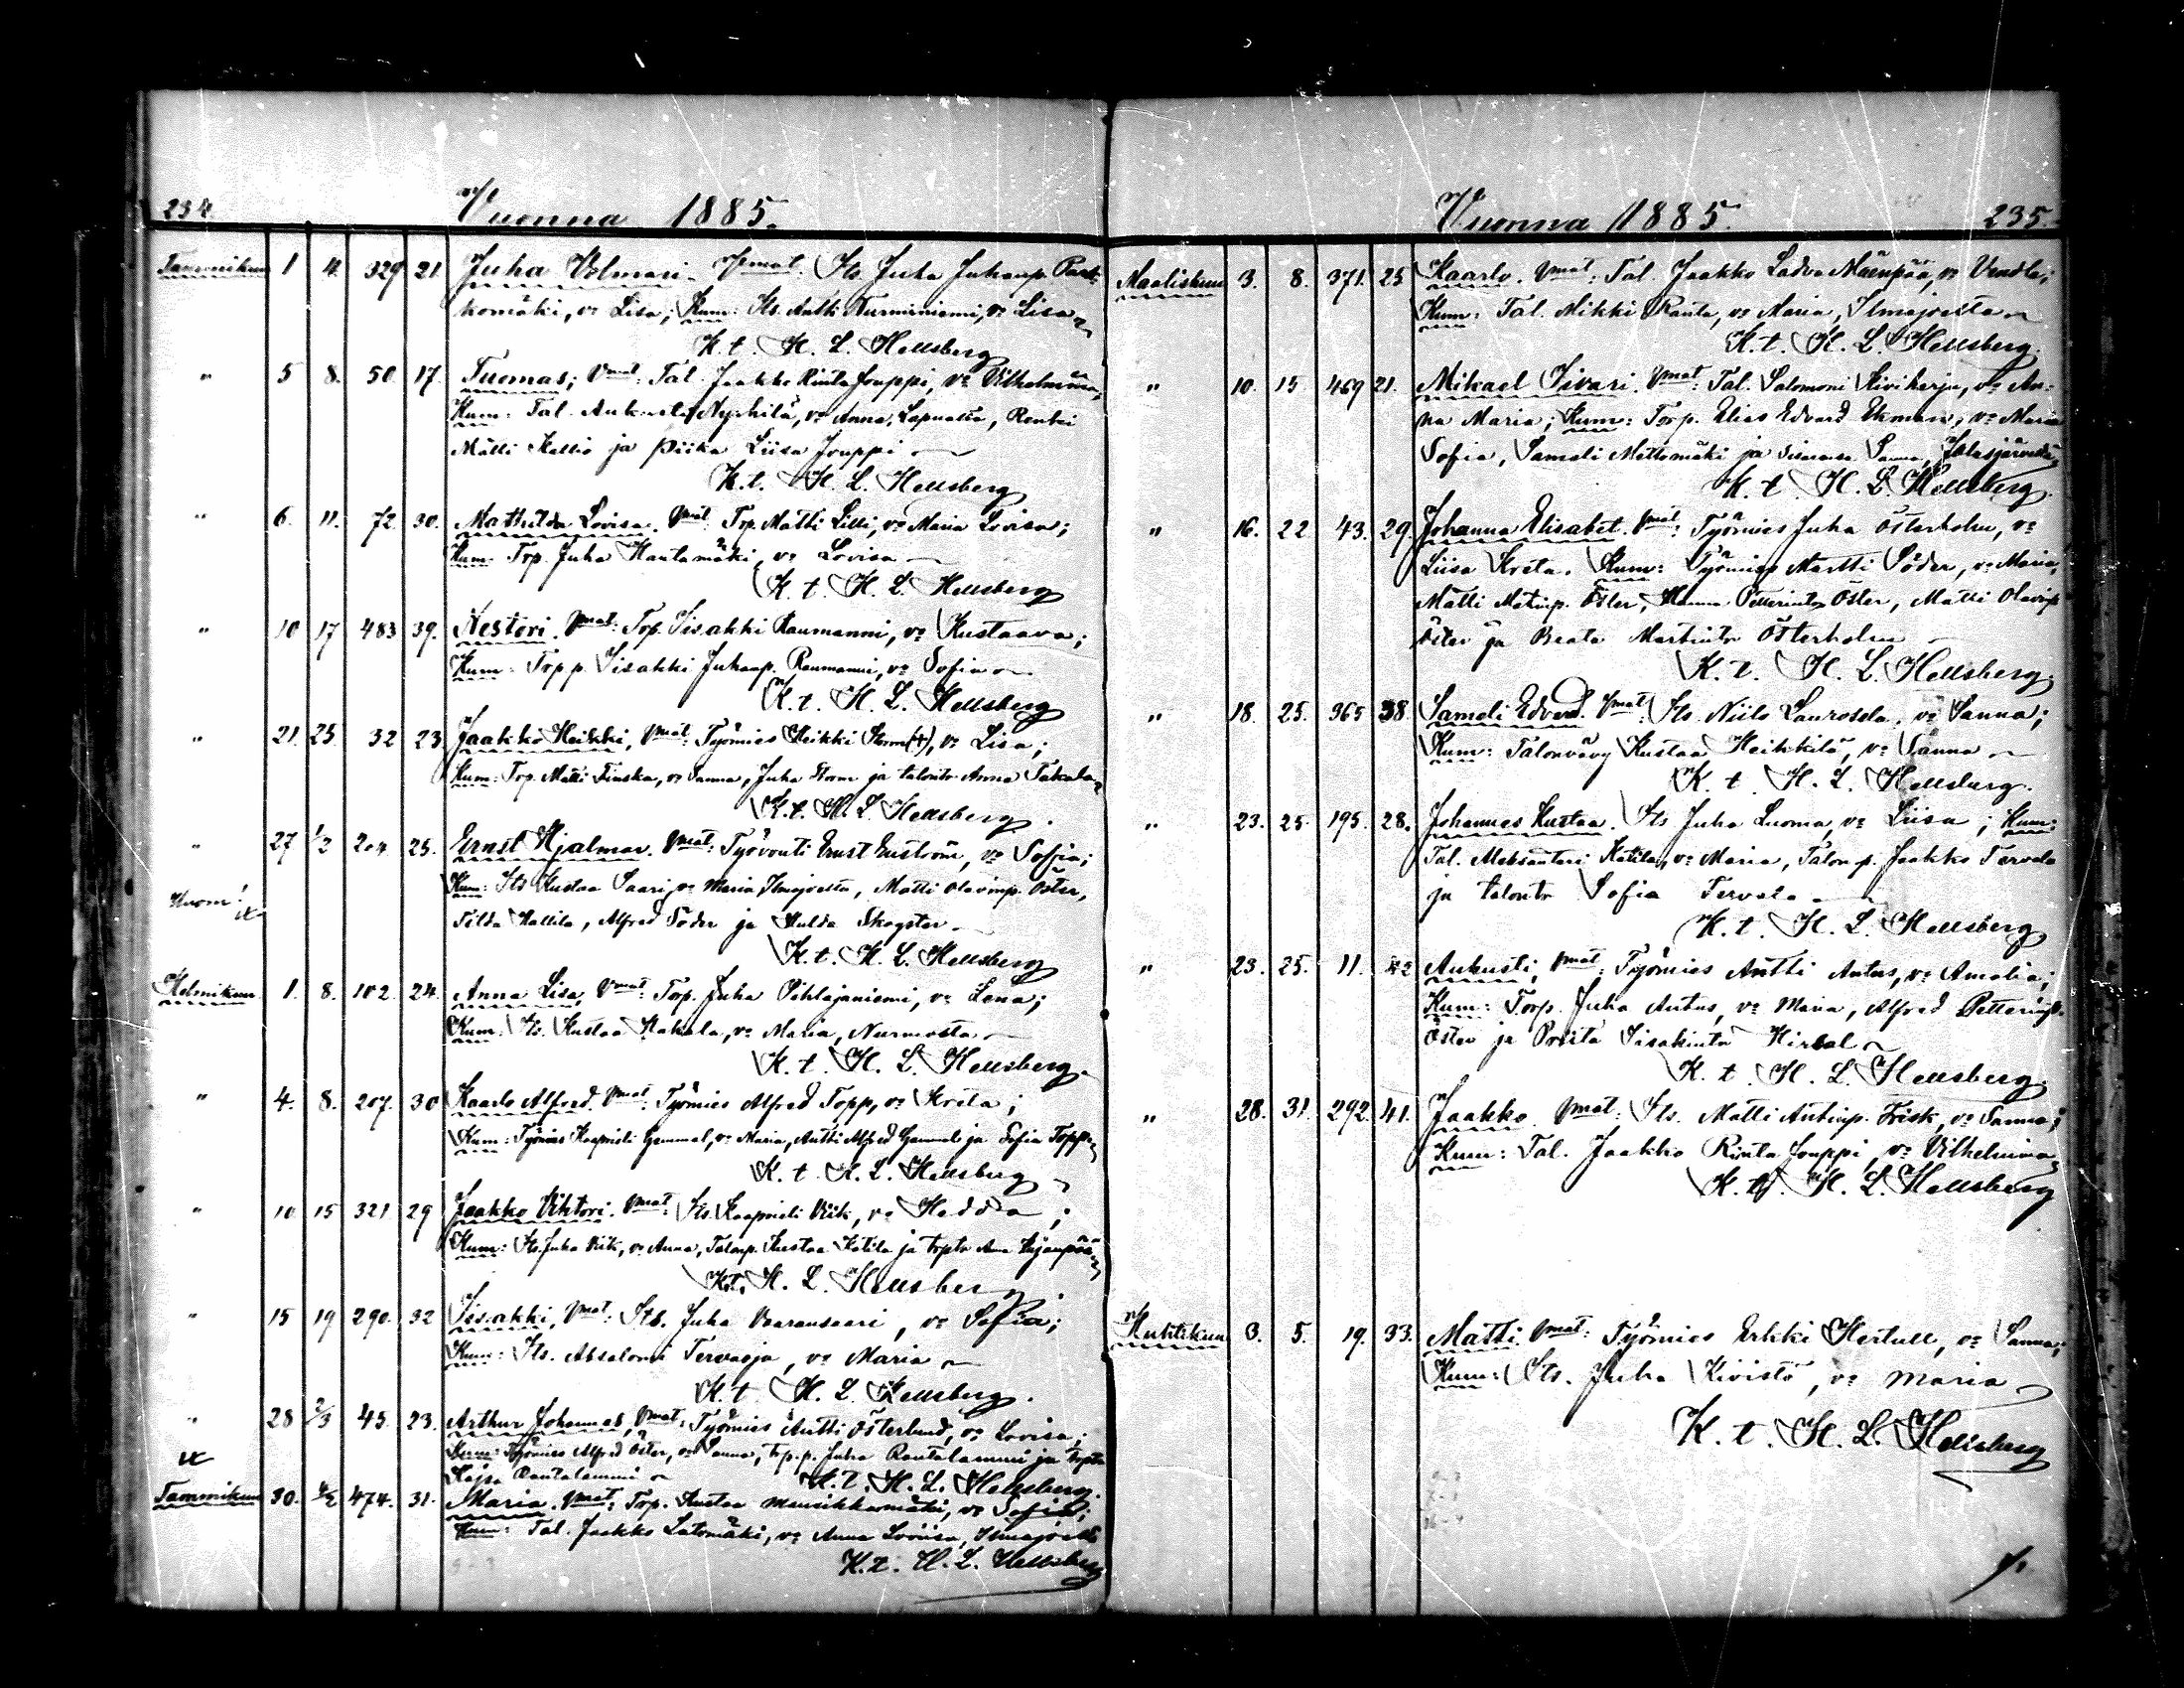 234. Vuonna 1885.
Tammikuu 1 4. 329 21. Juha Volmari. Vmat: Its. Juha Juhanp. Pank-
komäki, vo Lisa; Kum: Its. Antti Nurminiemi, vo Lisa
K. t. H. L. Hellsberg
" 5 8. 50. 17. Tuomas; Vmat: Tal. Jaakko Rinta Jouppi, vo Vilhelmiina,
Kum: Tal. Aukusti Nyrhilä, vo Anna, Lapualta, Renki
Matti Kallio ja piika Liisa Jouppi
K. t. H. L. Hellsberg
" 6. 11. 72. 30. Mathilda Lovisa. Vmat: Trp. Matti Lilli, vo Maria Lovisa;
Kum: Trp. Juha Hautamäki, vo Lovisa
K. t. H. L. Hellsberg
" 10 17 483 39. Nestori. Vmat: Trp. Iisakki Raumanni, vo Kustaava;
Kum: Trp p. Iisakki Juhanp. Raumanni, vo Sofia
K. t. H. L. Hellsberg
" 21. 25. 32 23. Jaakko Heikki, Vmat: Työmies Heikki Storm (+), vo Lisa;
Kum: Trp. Matti Finska, vo Sanna, Juha Storm ja talontr Anna Takala
K. t. H. L. Hellsberg.
" 27 1/2 204 25. Ernst Hjalmar. Vmat: Työvouti Ernst Enström, vo Sofia;
Kum: Its Kustaa Saari, vo Maria Ilmajoelta, Matti Olavinp. Öster,
Huom!
Tilda Kallila, Alfred Söder ja Hulda Skogster
K. t. H. L. Hellsberg
Helmikuu 1. 8. 102. 24. Anna Lisa, Vmat: Torp. Juha Pihlajaniemi, vo Lena;
Kum: Its. Kustaa Hakala, vo Maria, Nurmosta
K. t. H. L. Hellsberg.
" 4. 8. 207. 30 Kaarlo Alfred. Vmat: Työmies Alfred Topp, vo Kreta;
Kum: Työmies Kaaprieli Gammal, vo Maria, Antti Alfred Gammal ja Sofia Topp
K. t. H. L. Hellsberg
" 10 15 321 29 Jaakko Viktori. Vmat: Its. Kaaprieli Viik, vo Hedda;
Kum: Its. Juha Viik, vo Anna, Talonp. Kustaa Kotila ja trptr Anna
K. t. H. L. Hellsberg
" 15 19 290. 32 Iisakki, Vmat: Its. Juha Varansaari, vo Sofia;
Kum: Its. Absalomi Tervasja, vo Maria
K. t. H. L. Hellsberg.
" 28 2/3 45. 23. Arthur Johannes, Vmat: Työmies Antti Österlund, vo Lovisa;
Kum: Työmies Alfred Öster, vo Sanna, trp.p. Juha Rantalammi ja trptr
Kajsa Rantalammi
K. t. H. L. Hellsberg.
Tammikuu 30. 4/2 474. 31. Maria. Vmat: Trp. Kustaa Mansikkamäki, vo Sofia;
Kum: Tal. Jaakko Latomäki, vo Anna Loviisa, Ilmajoelta
K. t. H. L. Hellsberg
Vuonna 1885. 235.
Maaliskuu 3. 8. 371. 25 Kaarlo. Vmat: Tal. Jaakko Ladva Mäenpää, vo Vendla;
Kum: Tal. Mikki Ranta, vo Maria, Ilmajoelta
K. t. H. L. Hellsberg.
" 10. 15. 469 21. Mikael Iivari. Vmat: Tal. Salomoni Kiviharju, vo An-
na Maria; Kum: Torp. Elias Edvard Ekman, vo Maria
Sofia, Sameli Mettomäki ja sisarensa Sanna, Jalasjärveltä
K. t. H. L. Hellsberg.
" 16. 22 43. 29. Johanna Elisabet. Vmat: Työmies Juha Österholm, vo
Liisa Kreta. Kum: Työmies Martti Söder, vo Maria,
Matti Matinp. Öster, Hanna Petterintr Öster, Matti Olavinp
Öster ja Beata Martintr Österholm
K. t. H. L. Hellsberg.
" 18. 25. 365 38 Sameli Edvard. Vmat: Its. Niilo Laurosela, vo Sanna;
Kum: Talonvävy Kustaa Heikkilä, vo Sanna
K. t. H. L. Hellsberg.
" 23. 25. 195. 28. Johannes Kustaa. Its Juha Luoma, vo Liisa; Kum:
Tal. Aleksanteri Katila, vo Maria, Talon p. Jaakko Tervala
ja talontr Sofia Tervala
K. t. H. L. Hellsberg
" 23. 25. 11. 42 Aukusti, Vmat: Työmies Antti Antus, vo Amalia;
Kum: Torp. Juha Antus, vo Maria, Alfred Petterinp.
Öster ja Priita Iisakintr Hirbal
K. t. H. L. Hellsberg.
" 28. 31. 292. 41. Jaakko. Vmat: Its. Matti Antinp. Frisk, vo Sanna;
Kum: Tal. Jaakko Rinta Jouppi, vo Vilhelmiina
K. t. H. L. Hellsberg
Huhtikuu 3. 5. 19. 33. Matti. Vmat: Työmies Erkki Hertull, vo Sanna;
Kum: Its. Juha Kivistö, vo Maria
K. t. H. L. Hellsberg